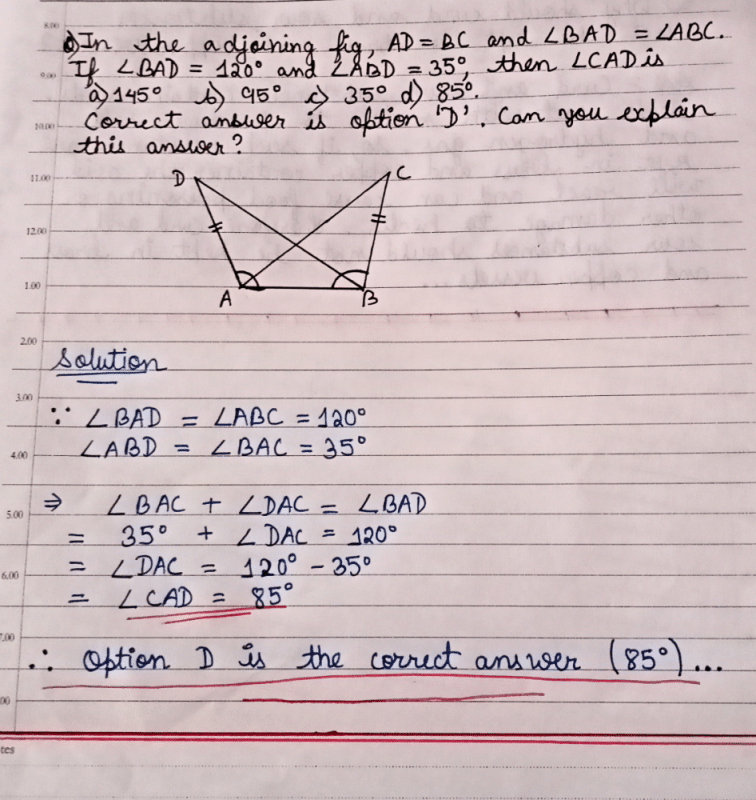 8.00
Q) In the adjoining fig, AD = BC and ∠BAD = ∠ABC.
9.00 If ∠BAD = 120° and ∠ABD = 35°, then ∠CAD is
a) 145° b) 95° c) 35° d) 85°.
10.00 Correct answer is option 'D'. Can you explain
this answer?
11.00 D C
12.00
1.00
A B
2.00
Solution
3.00
∵ ∠BAD = ∠ABC = 120°
4.00 ∠ABD = ∠BAC = 35°
⇒ ∠BAC + ∠DAC = ∠BAD
5.00
= 35° + ∠DAC = 120°
= ∠DAC = 120° - 35°
6.00
= ∠CAD = 85°
7.00
∴ Option D is the correct answer (85°)...
00
tes